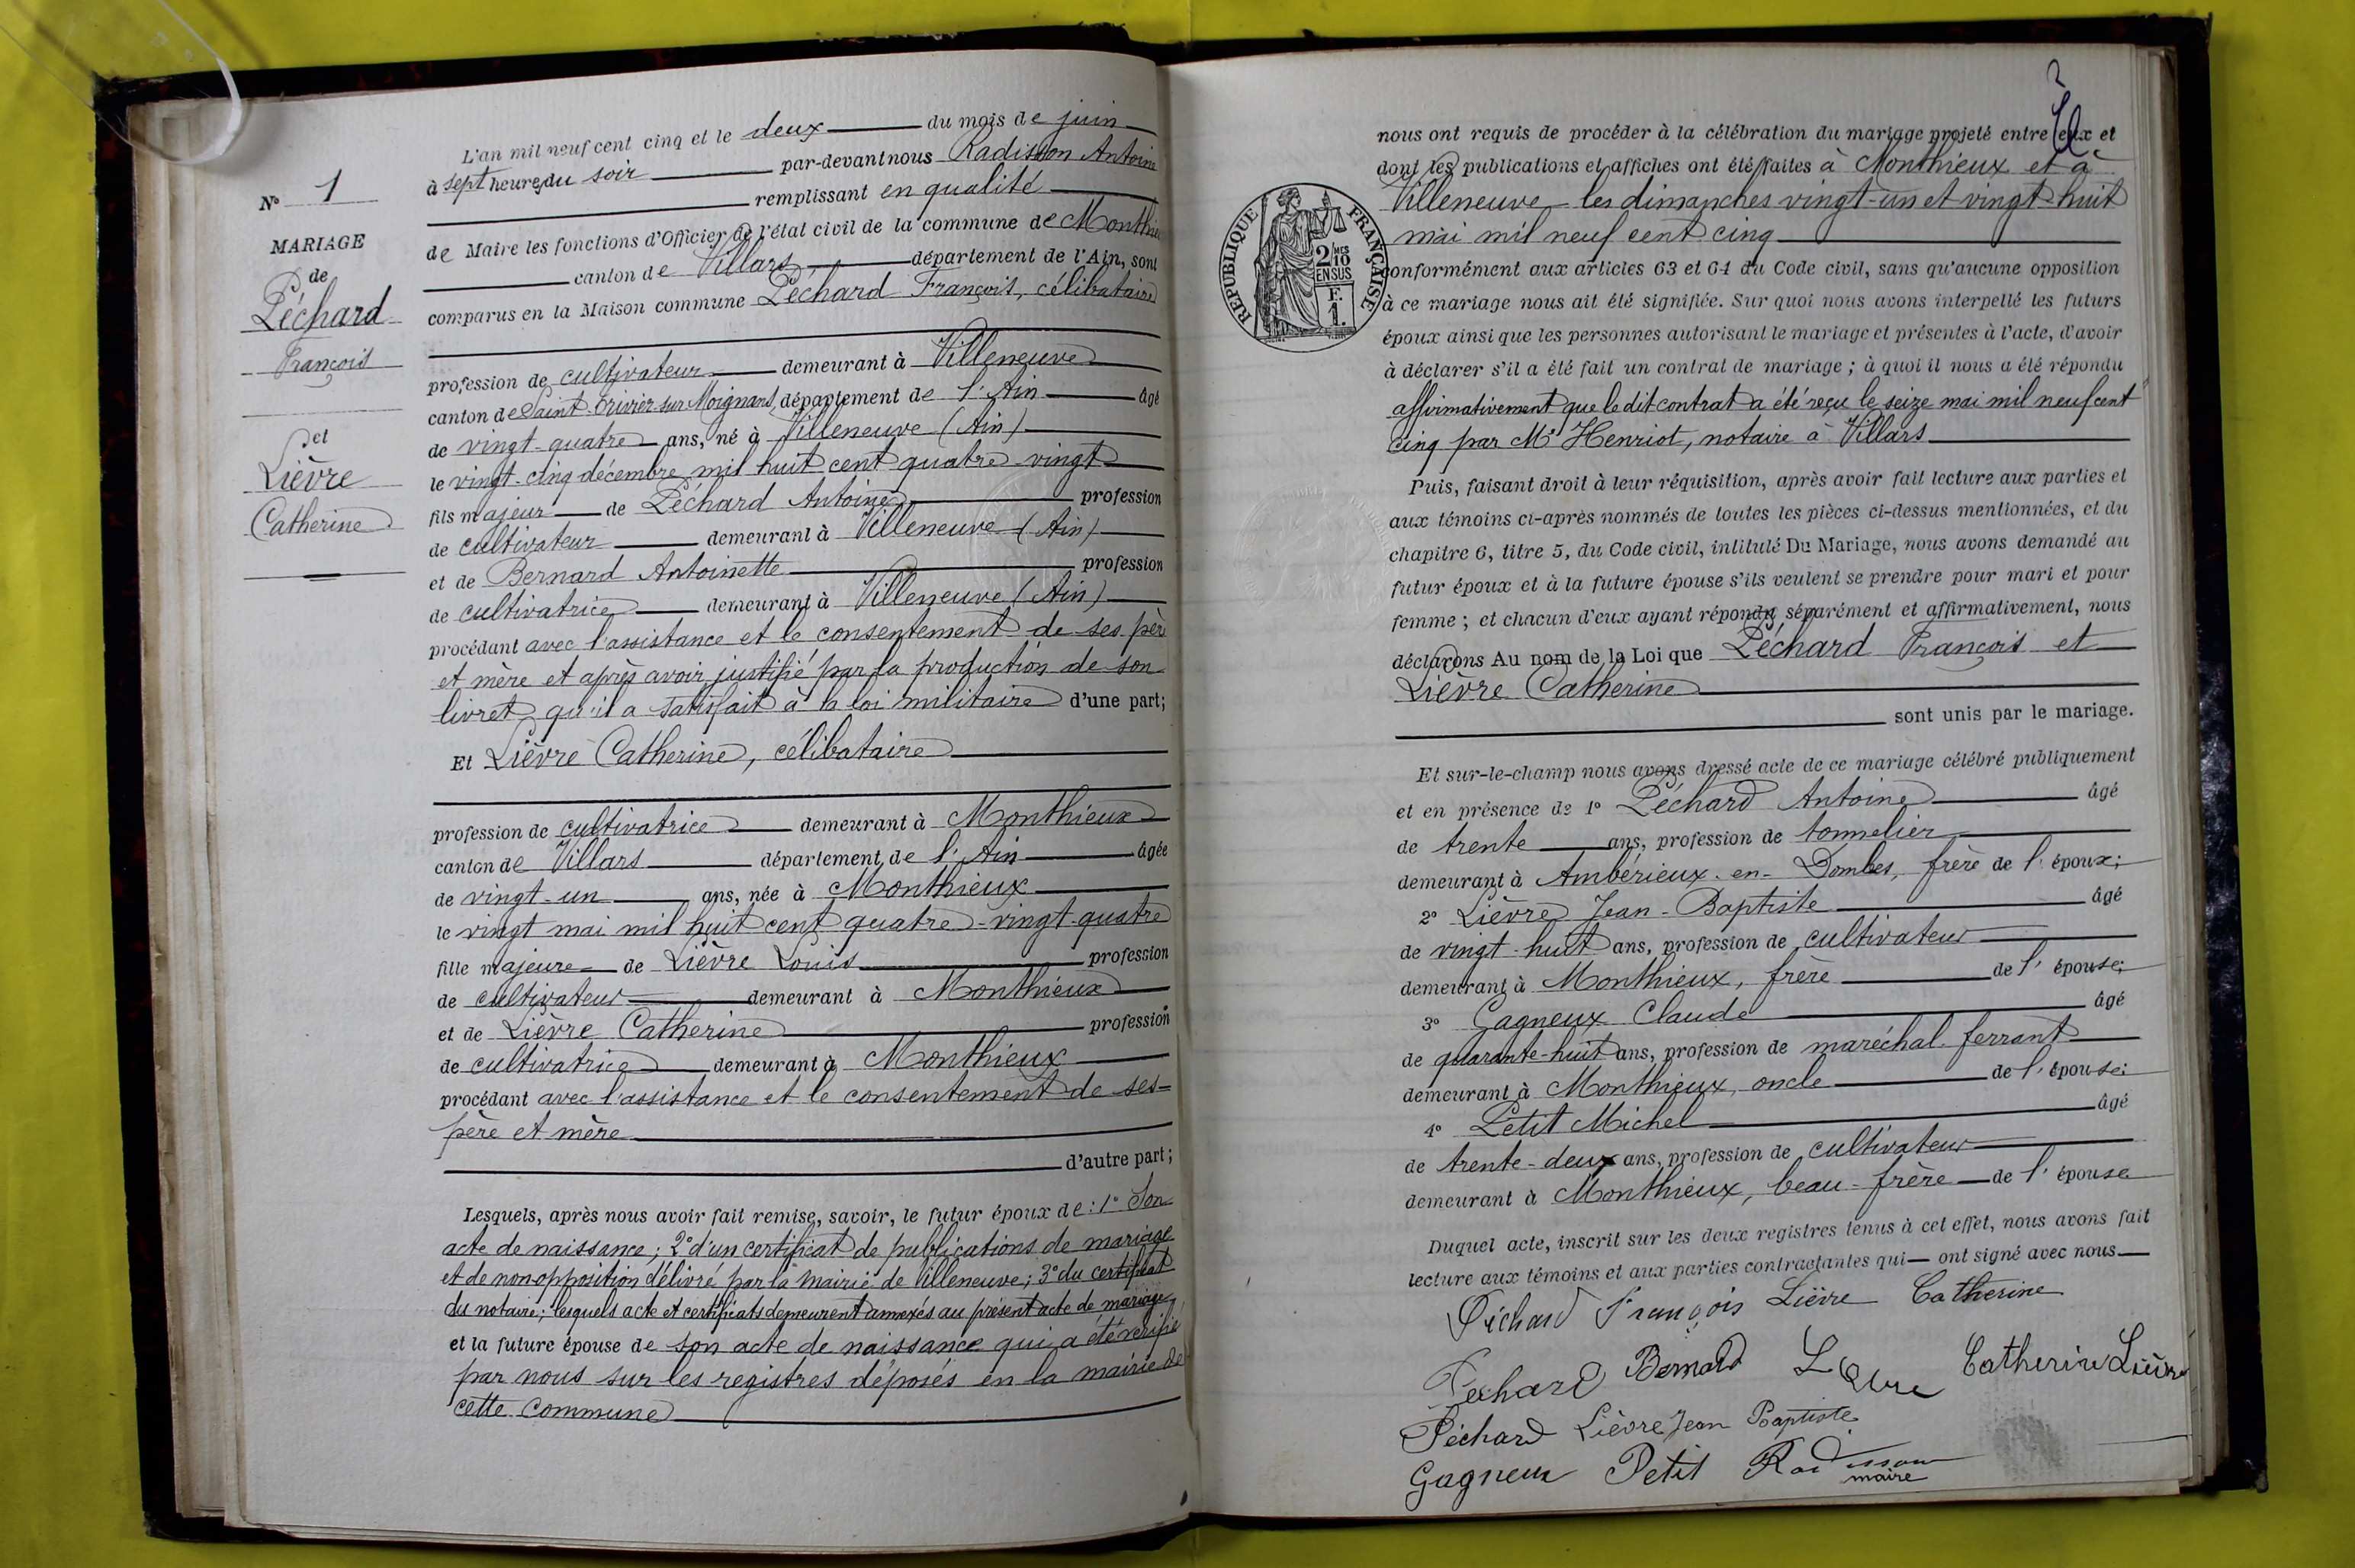 L'an mil neuf cent cinq et le deux du mois de juin
à sept heures du soir par-devant nous Radisson Antoine
remplissant en qualité
de Maire les fonctions d'Officier de l'état civil de la commune de Monthieux
canton de Villars département de l'Ain, sont
comparus en la Maison commune Péchard François, célibataire
N° 1
MARIAGE
de
Péchard
François
et
Lièvre
Catherine
profession de cultivateur demeurant à Villeneuve
canton de Saint-Trivier sur Moignans, département de l'Ain âgé
de vingt-quatre ans, né à Villeneuve (Ain)
le vingt-cinq décembre mil huit cent quatre-vingt
fils majeur de Péchard Antoine profession
de cultivateur demeurant à Villeneuve (Ain)
et de Bernard Antoinette profession
de cultivatrice demeurant à Villeneuve (Ain)
procédant avec l'assistance et le consentement de ses père
et mère et après avoir justifié par la production de son
livret qu'il a satisfait à la loi militaire d'une part;
Et Lièvre Catherine, célibataire
profession de cultivatrice demeurant à Monthieux
canton de Villars département de l'Ain âgée
de vingt-un ans, née à Monthieux
le vingt mai mil huit cent quatre-vingt-quatre
fille majeure de Lièvre Louis profession
de cultivateur demeurant à Monthieux
et de Lièvre Catherine profession
de cultivatrice demeurant à Monthieux
procédant avec l'assistance et le consentement de ses
père et mère
d'autre part;
Lesquels, après nous avoir fait remise, savoir, le futur époux de: 1° Son
acte de naissance; 2° d'un certificat de publications de mariage
et de non opposition délivré par la mairie de Villeneuve; 3° du certificat
du notaire; lesquels acte et certificats demeurent annexés au présent acte de mariage
et la future épouse de son acte de naissance qui a été vérifié
par nous sur les registres déposés en la mairie de
cette commune
2
nous ont requis de procéder à la célébration du mariage projeté entre eux et
dont les publications et affiches ont été faites à Monthieux et à
Villeneuve les dimanches vingt-un et vingt-huit
mai mil neuf cent cinq
REPUBLIQUE FRANÇAISE
2/10 MES
EN SUS
F.
1.
conformément aux articles 63 et 64 du Code civil, sans qu'aucune opposition
à ce mariage nous ait été signifiée. Sur quoi nous avons interpellé les futurs
époux ainsi que les personnes autorisant le mariage et présentes à l'acte, d'avoir
à déclarer s'il a été fait un contrat de mariage; à quoi il nous a été répondu
affirmativement que le dit contrat a été reçu le seize mai mil neuf cent
cinq par Me Henriot, notaire à Villars
Puis, faisant droit à leur réquisition, après avoir fait lecture aux parties et
aux témoins ci-après nommés de toutes les pièces ci-dessus mentionnées, et du
chapitre 6, titre 5, du Code civil, intitulé Du Mariage, nous avons demandé au
futur époux et à la future épouse s'ils veulent se prendre pour mari et pour
femme; et chacun d'eux ayant répondu séparément et affirmativement, nous
déclarons Au nom de la Loi que Péchard François et
Lièvre Catherine
sont unis par le mariage.
Et sur-le-champ nous avons dressé acte de ce mariage célébré publiquement
et en présence de 1° Péchard Antoine âgé
de trente ans, profession de tonnelier
demeurant à Ambérieux-en-Dombes, frère de l'époux;
2° Lièvre Jean-Baptiste âgé
de vingt-huit ans, profession de cultivateur
demeurant à Monthieux, frère de l'épouse;
3° Gagneux Claude âgé
de quarante-huit ans, profession de maréchal-ferrant
demeurant à Monthieux, oncle de l'épouse;
4° Petit Michel âgé
de trente-deux ans, profession de cultivateur
demeurant à Monthieux, beau-frère de l'épouse
Duquel acte, inscrit sur les deux registres tenus à cet effet, nous avons fait
lecture aux témoins et aux parties contractantes qui ont signé avec nous
Péchard François Lièvre Catherine
Péchard Bernard L Lièvre Catherine Lièvre
Péchard Lièvre Jean Baptiste
Gagneux Petit Radisson
maire